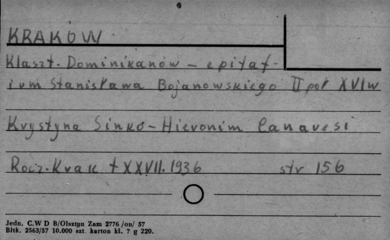 KRAKÓW
Klaszt. Dominikanów - epitaf-
ium Stanisława Bojanowskiego II poł XVI w
Krystyna Sinko - Hieronim Canavesi
Rocz. Krak t XXVII. 1936 str 156
Jedn. C.W D B/Olsztyn Zam 2776 /on/ 57
Błtk. 2563/57 10.000 szt. karton kl. 7 g 220.